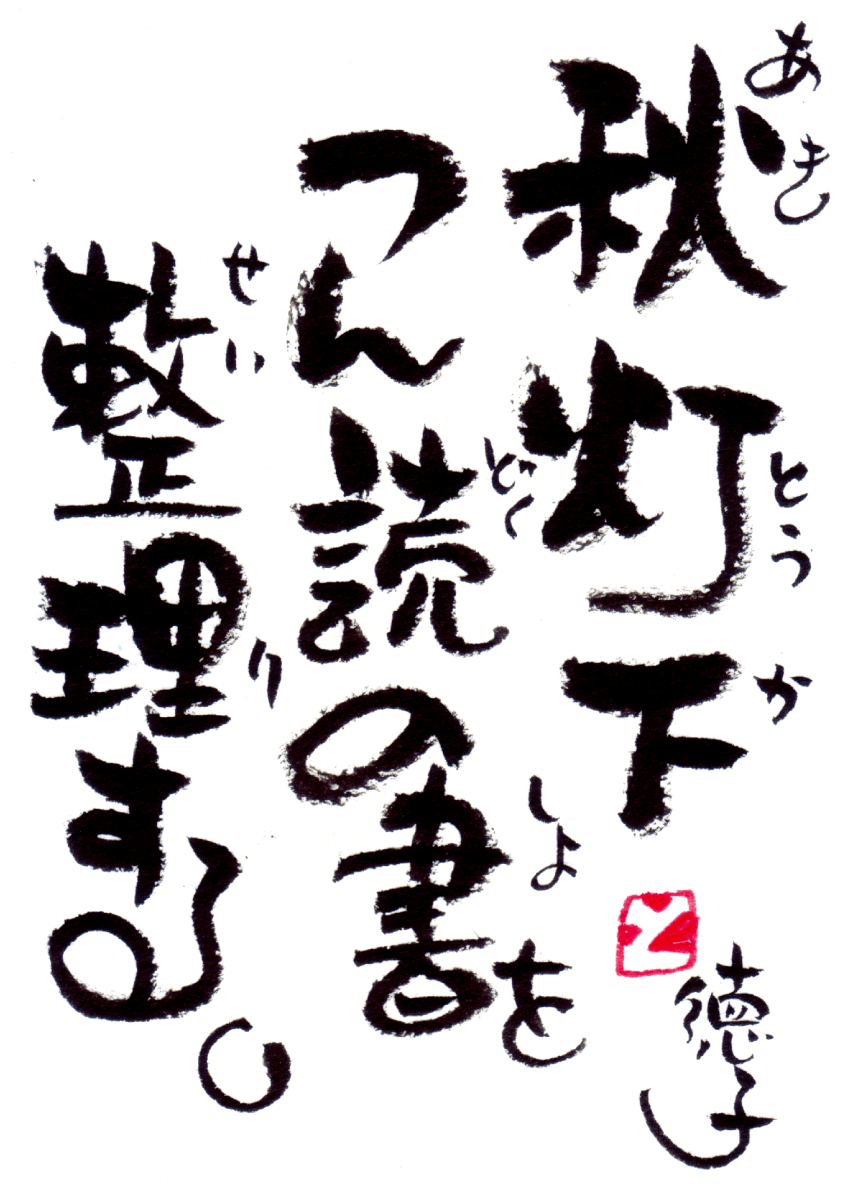 秋灯下
あき とう か
つん読の書を
どく しょ
整理する。
せい り
徳子